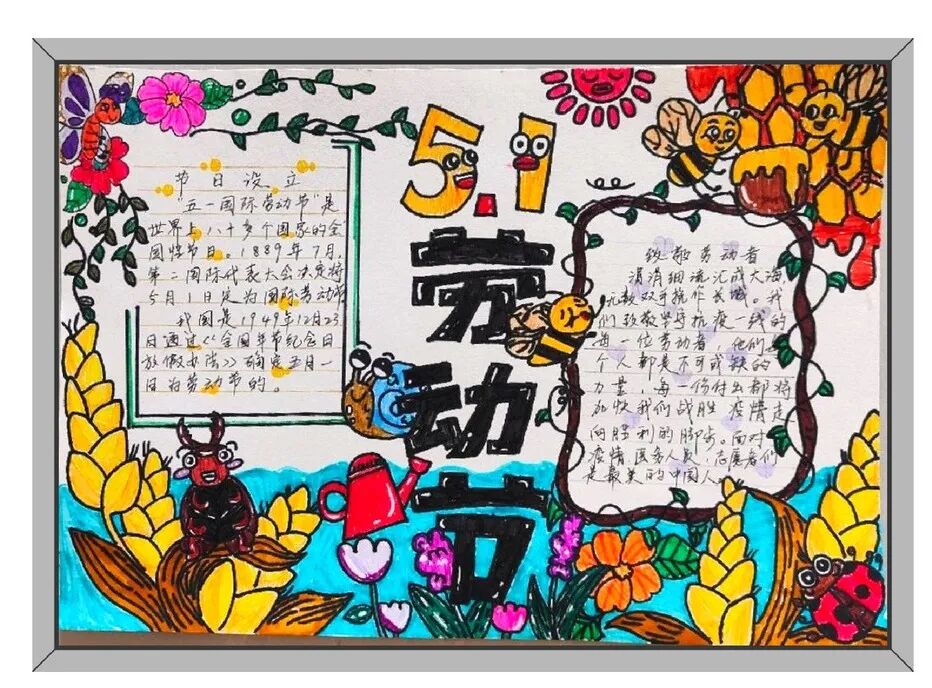 5.1
劳动节
节日设立
"五一国际劳动节"是
世界上八十多个国家的全
国性节日。1889年7月,
第二国际代表大会决定将
今月1日定为国际劳动节
我国是1949年12月23
日通过《全国年节纪念日
放假办法》确定五月一
日为劳动节的。
致敬劳动者
涓涓细流汇成大海,
无数双手抗作长城。我
们致敬坚守抗疫一线的
每一位劳动者,他们
个人都是不可或缺的
力量,每一份付出都将
加快我们战胜疫情走
向胜利的脚步。面对
疫情医务人员,志愿者们
是最美的中国人。